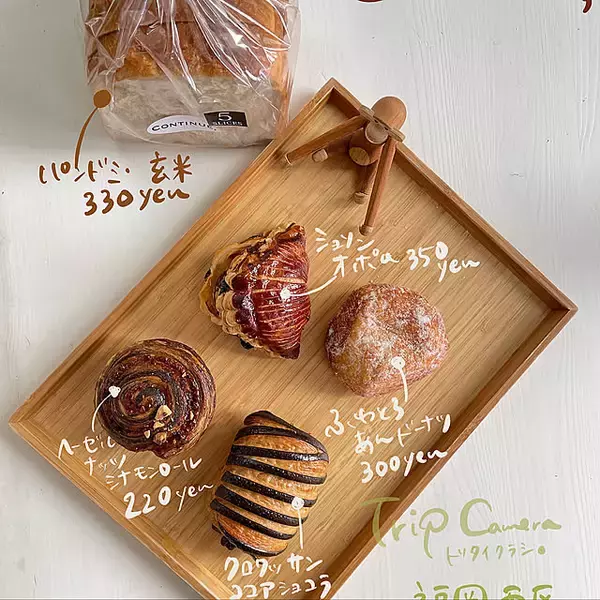 CONTINUE,
5
SLICES
パンドミ・玄米
330yen
ショソン
オポム 350
yen
ふわとろ
あんドーナツ
300yen
ヘーゼル
ナッツ
シナモンロール
220yen
クロワッサン
ココアショコラ
Trip Camera
トリタイクラシ。
福岡 西区